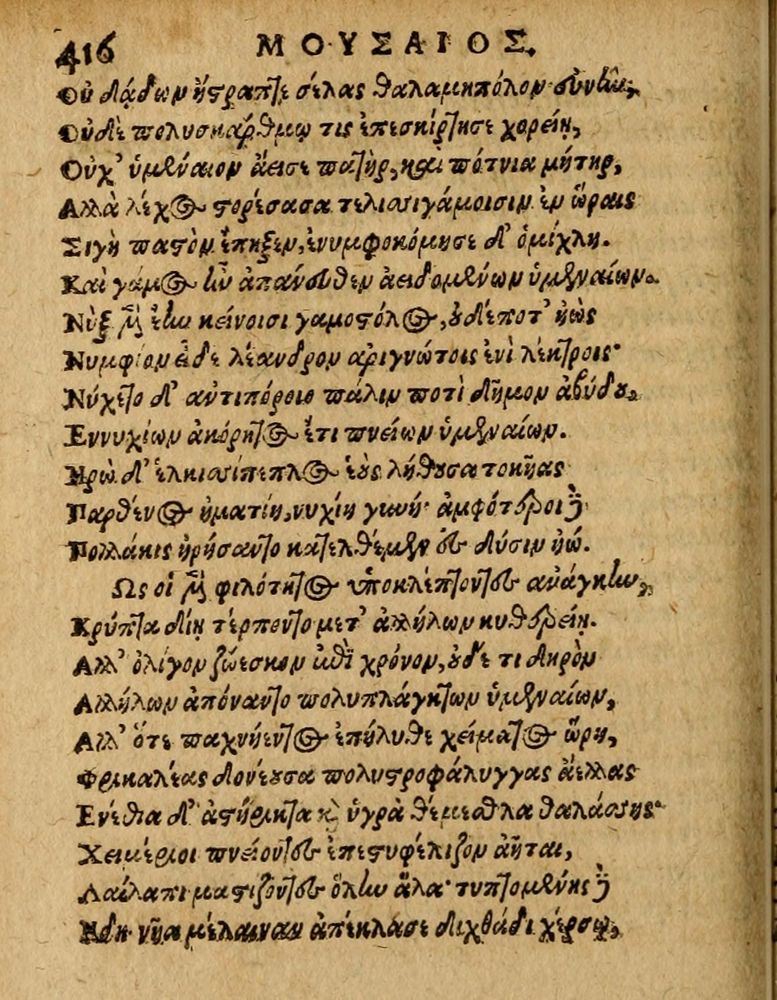 416 ΜΟΥΣΑΙΟΣ.
Οὐ δᾴδων ἤστραπτε σέλας θαλαμηπόλον εὐνὴν,
Οὐδὲ πολυσκάρθμῳ τις ἐπεσκίρτησε χορείῃ,
Οὐχ' ὑμέναιον ἄεισε πατὴρ, καὶ πότνια μήτηρ,
Αλλὰ λέχος στορέσασα τελεσσιγάμοισιν ἐν ὥραις
Σιγὴ παστὸν ἔπηξεν, ἐνυμφοκόμησε δ' ὁμίχλη.
Καὶ γάμος ἦν ἀπάνευθεν ἀειδομένων ὑμεναίων.
Νὺξ μὲν ἔην κείνοισι γαμοστόλος, οὐδέποτ' ἠὼς
Νυμφίον εἶδε λέανδρον ἀριγνώτοις ἐνὶ λέκτροις·
Νήχετο δ' αὐτιπόροιο πάλιν ποτὶ δῆμον ἀβύδου,
Εννυχίων ἀκόρητος ἔτι πνείων ὑμεναίων.
Ηρὼ δ' ἑλκεσσίπεπλος ἑοὺς λήθουσα τοκῆας
Παρθένος ἠματίη, νυχίη γυνή· ἀμφότεροι δὲ
Πολλάκις ἠρήσαντο κατελθέμεν ἐς δύσιν ἠώ.
Ως οἱ μὲν φιλότητος ὑποκλέπτοντες ἀνάγκην,
Κρυπταδίῃ τέρποντο μετ' ἀλλήλων κυθερείῃ.
Αλλ' ὀλίγον ζώεσκον ἐπὶ χρόνον, οὐδέ τι δηρὸν
Αλλήλων ἀπόναντο πολυπλάγκτων ὑμεναίων,
Αλλ' ὅτε παχνήεντος ἐπήλυθε χείματος ὥρη,
Φρικαλέας δονέουσα πολυστροφάλυγγας ἀέλλας
Βένθεα δ' ἀστήρικτα καὶ ὑγρὰ θέμεθλα θαλάσσης·
Χειμέριοι πνείοντες ἐπεστυφέλιζον ἀῆται,
Λαίλαπι μαστίζοντες ὅλην ἅλα· τυπτομένης δὲ
Ηδη νῆα μέλαιναν ἀπέκλασε διχθάδι χέρσῳ,